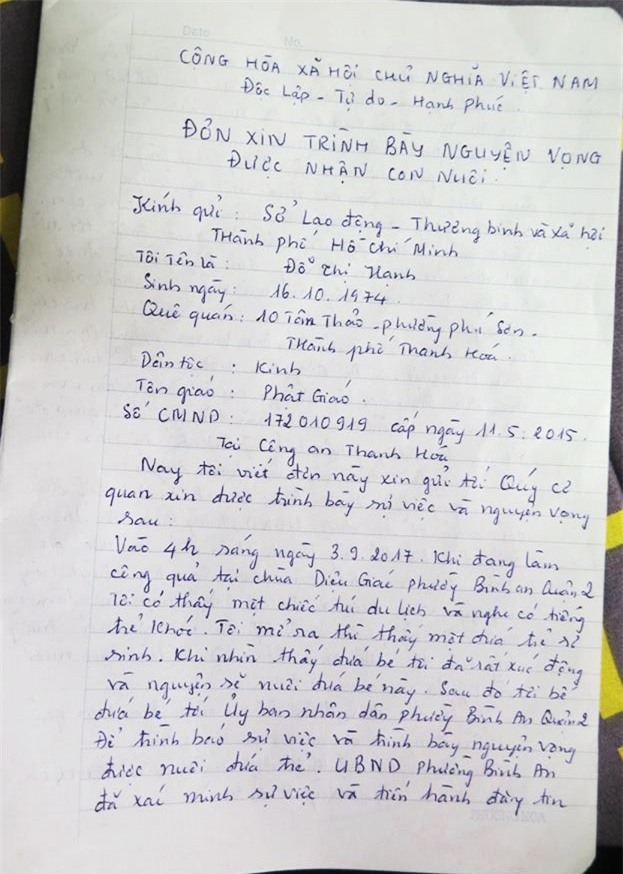 Date No.
CỘNG HÒA XÃ HỘI CHỦ NGHĨA VIỆT NAM
Độc Lập - Tự do - Hạnh phúc.
ĐƠN XIN TRÌNH BÀY NGUYỆN VỌNG
ĐƯỢC NHẬN CON NUÔI.
Kính gửi : Sở Lao động - Thương binh và xã hội
Thành phố Hồ Chí Minh
Tôi tên là : Đỗ Thị Hạnh
Sinh ngày : 16.10.1974.
Quê quán : 10 Tân Thảo - phường phú Sơn -
Thành phố Thanh Hoá.
Dân tộc : Kinh
Tôn giáo : Phật Giáo.
Số CMND : 172010919 cấp ngày 11.5.2015.
Tại Công an Thanh Hoá
Nay tôi viết đơn này xin gửi tới Quý cơ
quan xin được trình bày sự việc và nguyện vọng
sau :
Vào 4h sáng ngày 3.9.2017. Khi đang làm
công quả tại chùa Diệu Giác phường Bình an Quận 2
tôi có thấy một chiếc túi du lịch và nghe có tiếng
trẻ khóc. Tôi mở ra thì thấy một đứa trẻ sơ
sinh. Khi nhìn thấy đứa bé tôi đã rất xúc động
và nguyện sẽ nuôi đứa bé này. Sau đó tôi bế
đứa bé tới Ủy ban nhân dân phường Bình An Quận 2
Để trình báo sự việc và trình bày nguyện vọng
được nuôi đứa trẻ. UBND phường Bình An
đã xác minh sự việc và tiến hành đăng tin